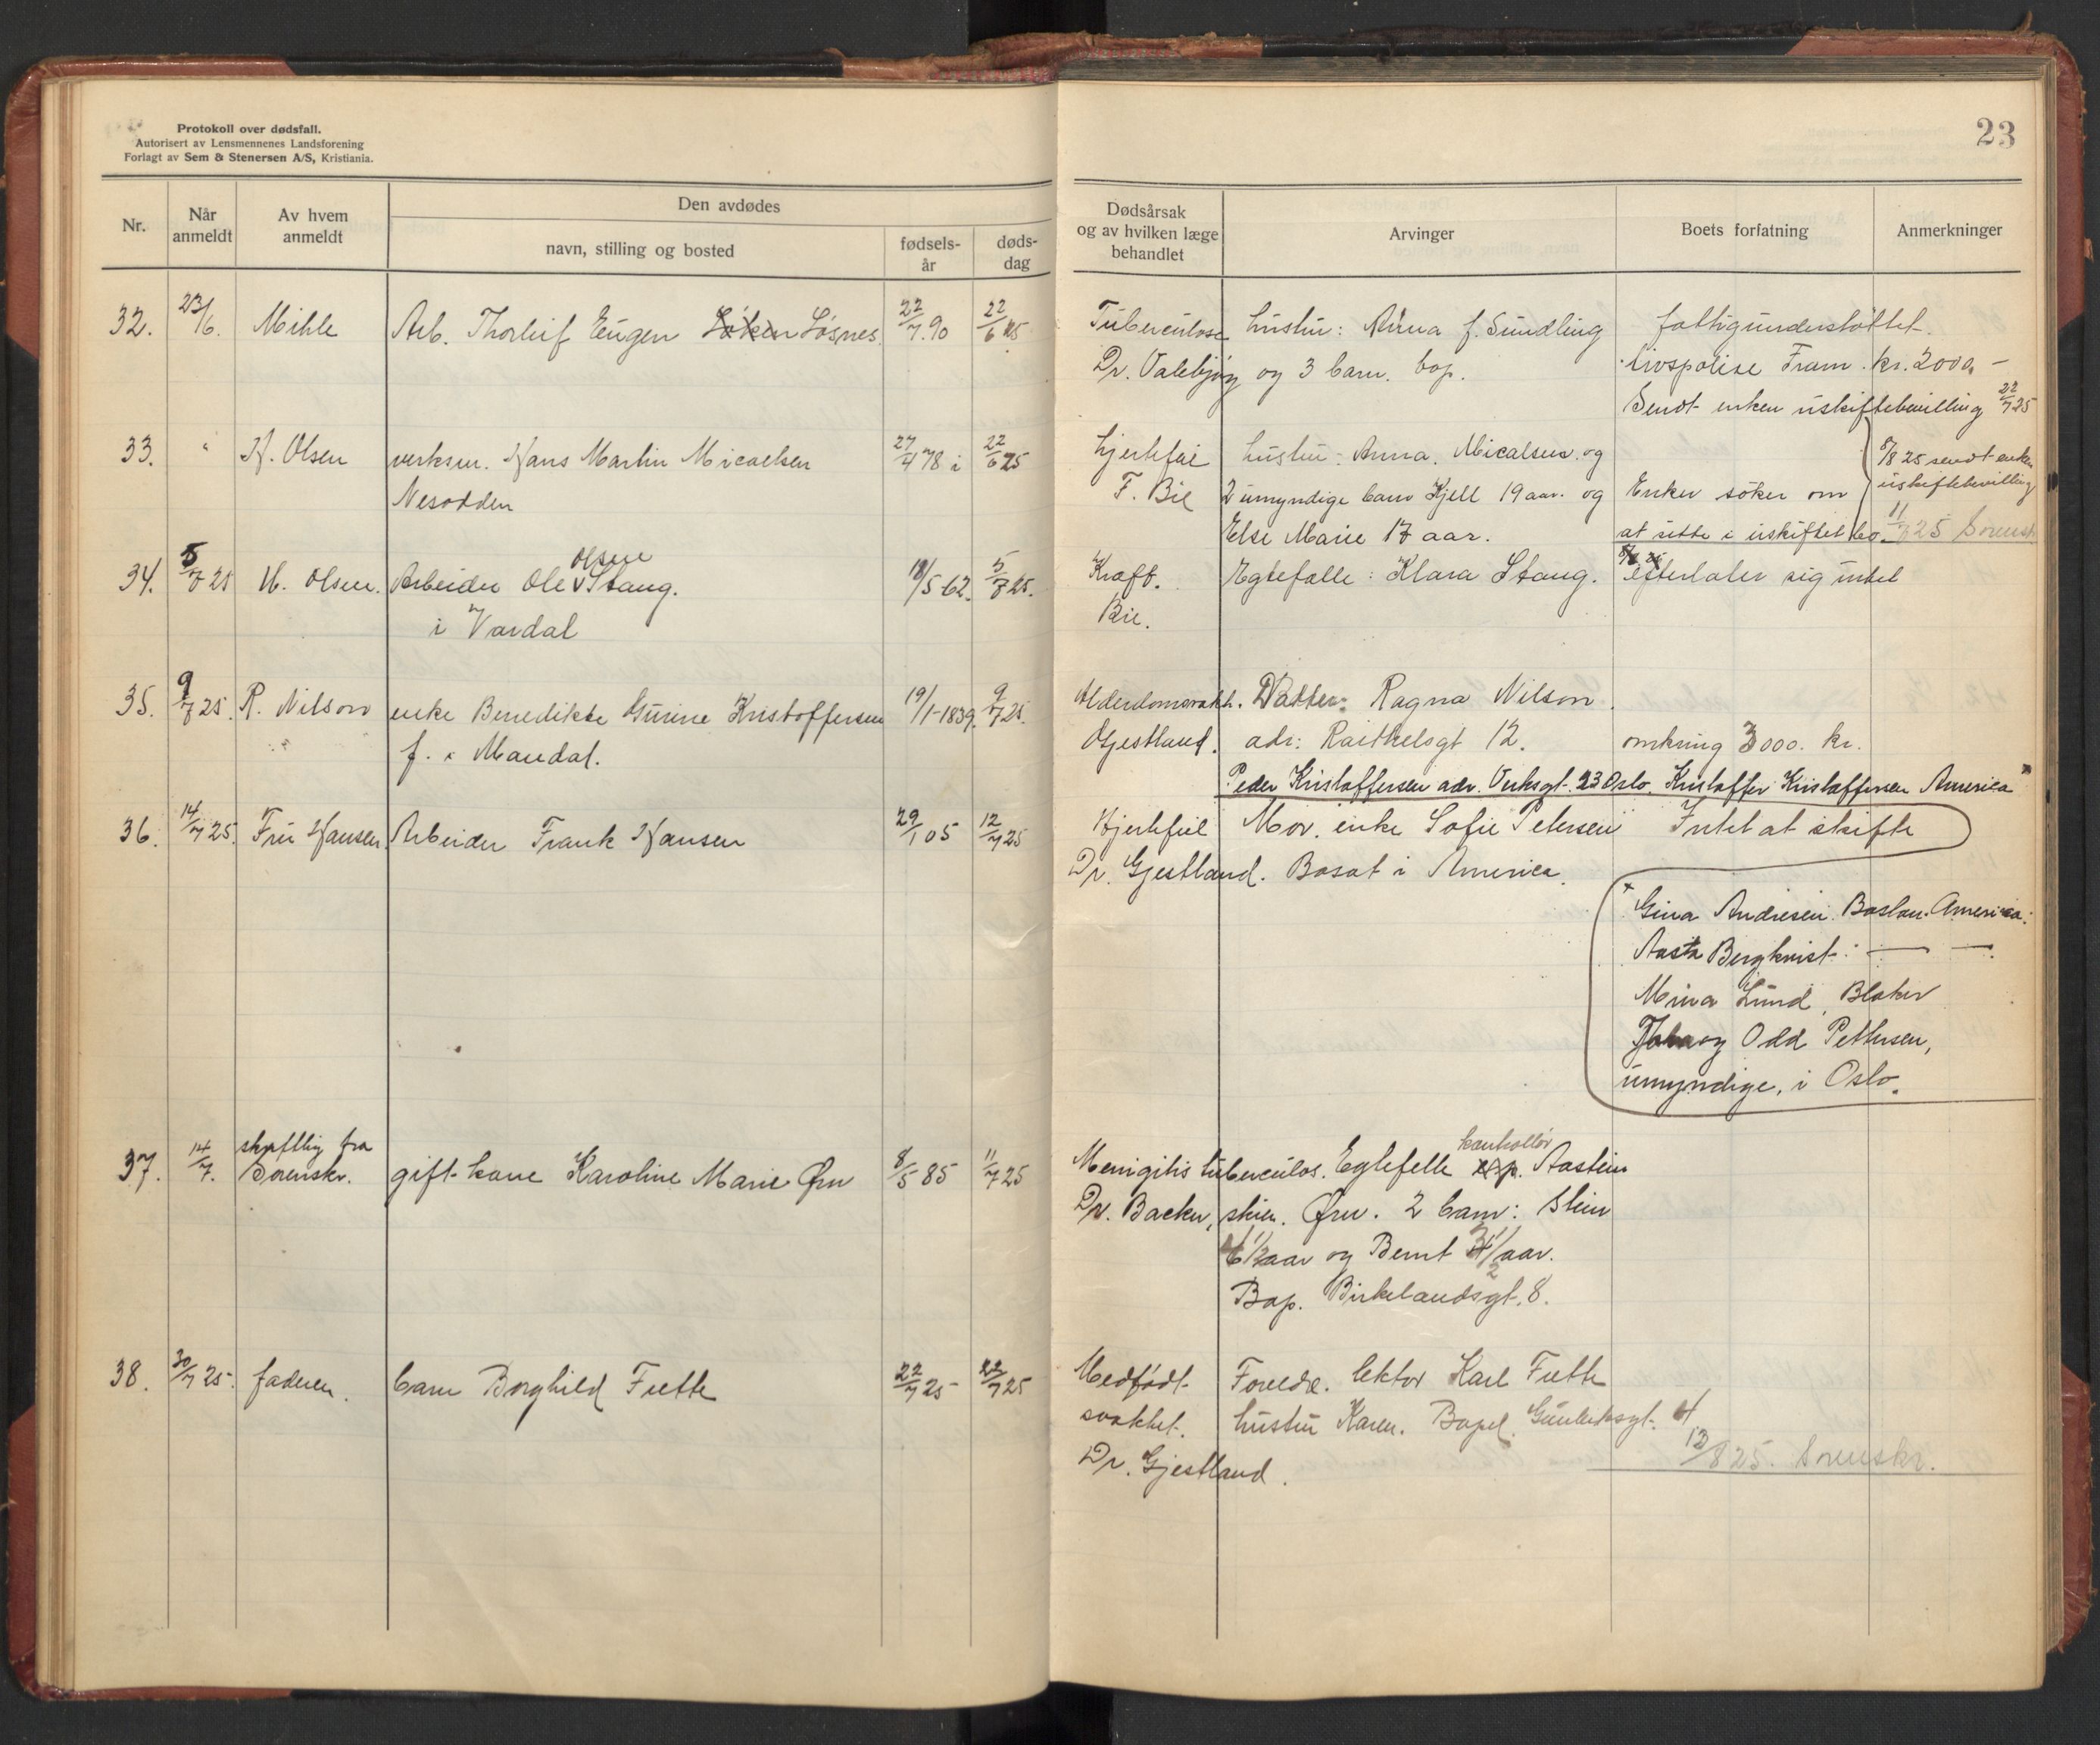 Protokoll over dødsfall.
Autorisert av Lensmennenes Landsforening
Forlagt av Sem & Stenersen A/S, Kristiania.
23
Nr.
Når anmeldt
Av hvem anmeldt
Den avdødes
navn, stilling og bosted
fødsels-år
døds-dag
Dødsårsak og av hvilken læge behandlet
Arvinger
Boets forfatning
Anmerkninger
32. 23/6. Mihle Arb. Thorleif Eugen Løken Løsnes. 22/7.90 22/6 25 Tuberculose hustru: Anna f. Sundling fattigunderstøttet.
Dr. Valebjørg og 3 barn. bop. Livspolise Fram. kr. 2000,-
Sendt enken uskiftebevilling 22/7 25
33. " H. Olsen verksm. Hans Martin Micaelsen 27/4 78 i 22/6 25 hjertefeil hustru: Anna. Micalsen. og 8/8 25 sendt enken
Nesodden F. Bie 2 umyndige barn Kjell 19 aar. og Enken søker om uskiftebevilling
Else Marie 17 aar. at sitte i uskiftet bo. 11/7 25 Sorensk
34. 5/7 25 H. Olsen. Arbeider Ole Olsen Stang. 18/5 62. 5/7 25. Kræft. Egtefælle: Klara Stang. efterlater sig intet
i Vardal Bie.
35. 9/7 25. R. Nilson enke Benedikte Gurine Kristoffersen 19/1-1839. 9/7 25. Alderdomsvakh. Datter: Ragna Nilson.
f. i Mandal. Gjestland. adr: Raithelsgt 12. omkring 3000. kr.
Peder Kristoffersen adr. Verksgt. 23 Oslo. Kristoffer Kristoffersen America
36. 14/7 25. Fru Hansen. Arbeider Frank Hansen 29/1 05 12/7 25 Hjertefeil Mor. enke Sofie Petersen Intet at skifte
Dr. Gjestland. Bosat i America.
Gina Andresen. Boston. America.
Aasta Bergkvist: — —.
Mina Lund, Blaker
og Odd Pettersen,
umyndige, i Oslo.
37. 14/7. skriftlig fra Sorenskr. gift kone Karoline Marie Ørn 8/5 85 11/7 25 Menigitis tuberculos. Egtefelle kontollør exp. Aastein
Dr. Backer, skien. Ørn. 2 barn: Stein
6 1/2 aar og Bernt 3 1/2 aar.
Bop. Birkelandsgt. 8.
38. 30/7 25. faderen. barn Borghild Frette 22/7 25 22/7 25 Medfødt Foreldre. lektor Karl Frette
svakhet. hustru Karen. Bopel. Gunleiksgt. 4
Dr. Gjestland. 12/8 25. Sorenskr.